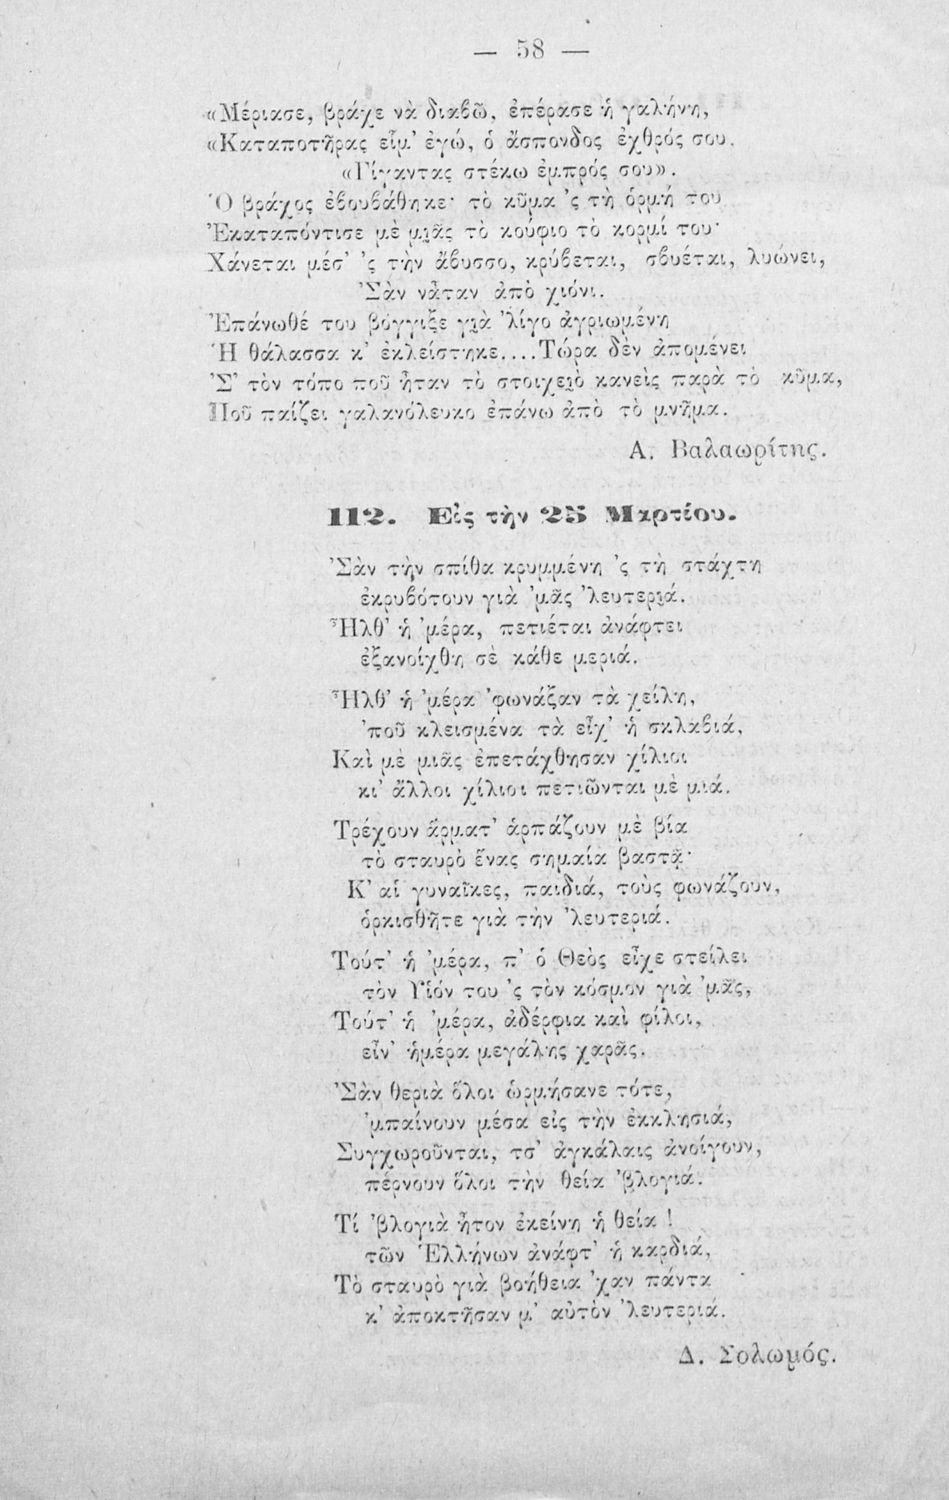 — 58 —
«Μέριασε, βράχε νὰ διαβῶ, ἐπέρασε ἡ γαλήνη,
«Καταποτῆρας εἶμ' ἐγώ, ὁ ἄσπονδος ἐχθρός σου.
«Γίγαντας στέκω ἐμπρός σου».
Ὁ βράχος ἐβουβάθηκε· τὸ κῦμα 'ς τὴ ὁρμή του
Ἐκαταπόντισε μὲ μιᾶς τὸ κούφιο τὸ κορμί του·
Χάνεται μέσ' 'ς τὴν ἄβυσσο, κρύβεται, σβυέται, λυώνει,
Σὰν νἆταν ἀπὸ χιόνι.
Ἐπάνωθέ του βόγγιξε γιὰ 'λίγο ἀγριωμένη
Ἡ θάλασσα κ' ἐκλείστηκε....Τώρα δὲν ἀπομένει
'Σ' τὸν τόπο ποῦ ἦταν τὸ στοιχειὸ κανεὶς παρὰ τὸ κῦμα,
Ποῦ παίζει γαλανόλευκο ἐπάνω ἀπὸ τὸ μνῆμα.
Α. Βαλαωρίτης.
112. Εἰς τὴν 25 Μαρτίου.
Σὰν τὴν σπίθα κρυμμένη 'ς τὴ στάχτη
ἐκρυβότουν γιὰ 'μᾶς 'λευτεριά.
Ἦλθ' ἡ 'μέρα, πετιέται ἀνάφτει
ἐξανοίχθη σὲ κάθε μεριά.
Ἦλθ' ἡ 'μέρα 'φωνάξαν τὰ χείλη,
'ποῦ κλεισμένα τὰ εἶχ' ἡ σκλαβιά,
Καὶ μὲ μιᾶς ἐπετάχθησαν χίλιοι
κι' ἄλλοι χίλιοι πετιῶνται μὲ μιά.
Τρέχουν ἅρματ' ἁρπάζουν μὲ βία
τὸ σταυρὸ ἕνας σημαία βαστᾷ·
Κ' αἱ γυναῖκες, παιδιά, τοὺς φωνάζουν,
ὁρκισθῆτε γιὰ τὴν 'λευτεριά.
Τούτ' ἡ 'μέρα, π' ὁ Θεὸς εἶχε στείλει
τὸν Υἱόν του 'ς τὸν κόσμον γιὰ 'μᾶς,
Τούτ' ἡ 'μέρα, ἀδέρφια καὶ φίλοι,
εἶν' ἡμέρα μεγάλης χαρᾶς.
Σὰν θεριὰ ὅλοι ὡρμήσανε τότε,
'μπαίνουν μέσα εἰς τὴν ἐκκλησιά,
Συγχωροῦνται, τσ' ἀγκάλαις ἀνοίγουν,
πέρνουν ὅλοι τὴν θεία 'βλογιά.
Τί 'βλογιὰ ἦτον ἐκείνη ἡ θεία !
τῶν Ἑλλήνων ἀνάφτ' ἡ καρδιά,
Τὸ σταυρὸ γιὰ βοήθεια 'χαν πάντα
κ' ἀποκτῆσαν μ' αὐτὸν 'λευτεριά.
Δ. Σολωμός.